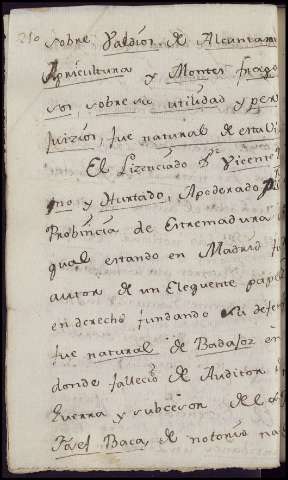 210
sobre Valdios de Alcantara
Agricultura y Montes frago
sos, sobre su utilidad y per
juizios, fue natural de esta Vi
El Lizenciado Dn Vicente
no y Hurtado, Apoderado
Probincia de Extremadura
qual estando en Madrid fu
autor de un Eloquente papel
en derecho fundando su defen
fue natural de Badajoz en
donde fallecio de Auditor
Guerra y subcesor del
Fael Baca, de notorio na